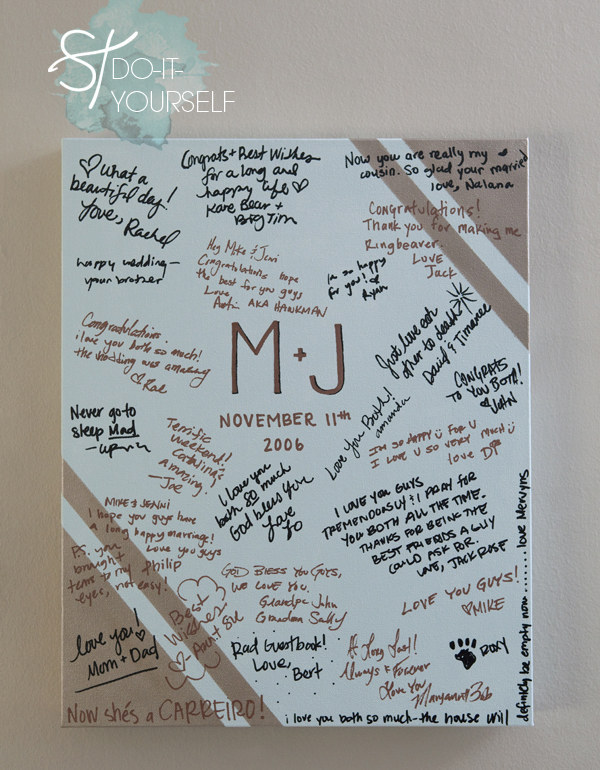 ST DO-IT-
YOURSELF
♡What a
beautiful day!
Love, Rachel
Congrats + Best Wishes
for a long and
happy life ♡
Kare Bear +
Big Tim
Now you are really my
cousin. So glad your married
love, Nalana
CONGRATULATIONS!
Thank you for making me
Ringbeaver.
LUVE
Jack
happy wedding-
your brother
Hey Mike & Jeni
Congratulations hope
the best for you guys
Love
AKA HAWKMAN
im so happy
for you!
Ryan
Just love each
other to death
David & Timaree
Congratulations.
i love you both so much!
the wedding was amazing
♡Rae
M+J
NOVEMBER 11TH
2006
CONGRATS
TO YOU BOTH!
♡JOHN
Love You Both!
amanda
Never go to
sleep Mad
Terrific
weekend!
Catalina's
amazing.
-Joe
I love you
both so much
God bless you
Love
Jo
I'M SO HAPPY Ü FOR U
I LOVE U SO VERY MUCH Ü
love DP
MIKE & JENNI
I hope you guys have
a long happy marriage!
Love you guys
Philip
P.S. you
brought
tears to my
eyes, not easy!
I LOVE YOU GUYS
TREMENDOUSLY! I PRAY FOR
YOU BOTH ALL THE TIME.
THANKS FOR BEING THE
BEST FRIENDS A GUY
COULD ASK FOR.
LOVE, JACK ROSE
GOD BLESS YOU GUYS,
WE LOVE YOU.
Grandpa John
Grandma Sally
LOVE YOU GUYS!
♡MIKE
Best
Wishes
♡-Aunt Su
love you!♡
Mom + Dad
Rad Guestbook!
Love,
Bert
At Long Last!
Always & Forever
Love You
Maryann & Bob
ROXY
Now shés a CARREIRO!
i love you both so much-the house will
definitely be empty now....... love Mervyns